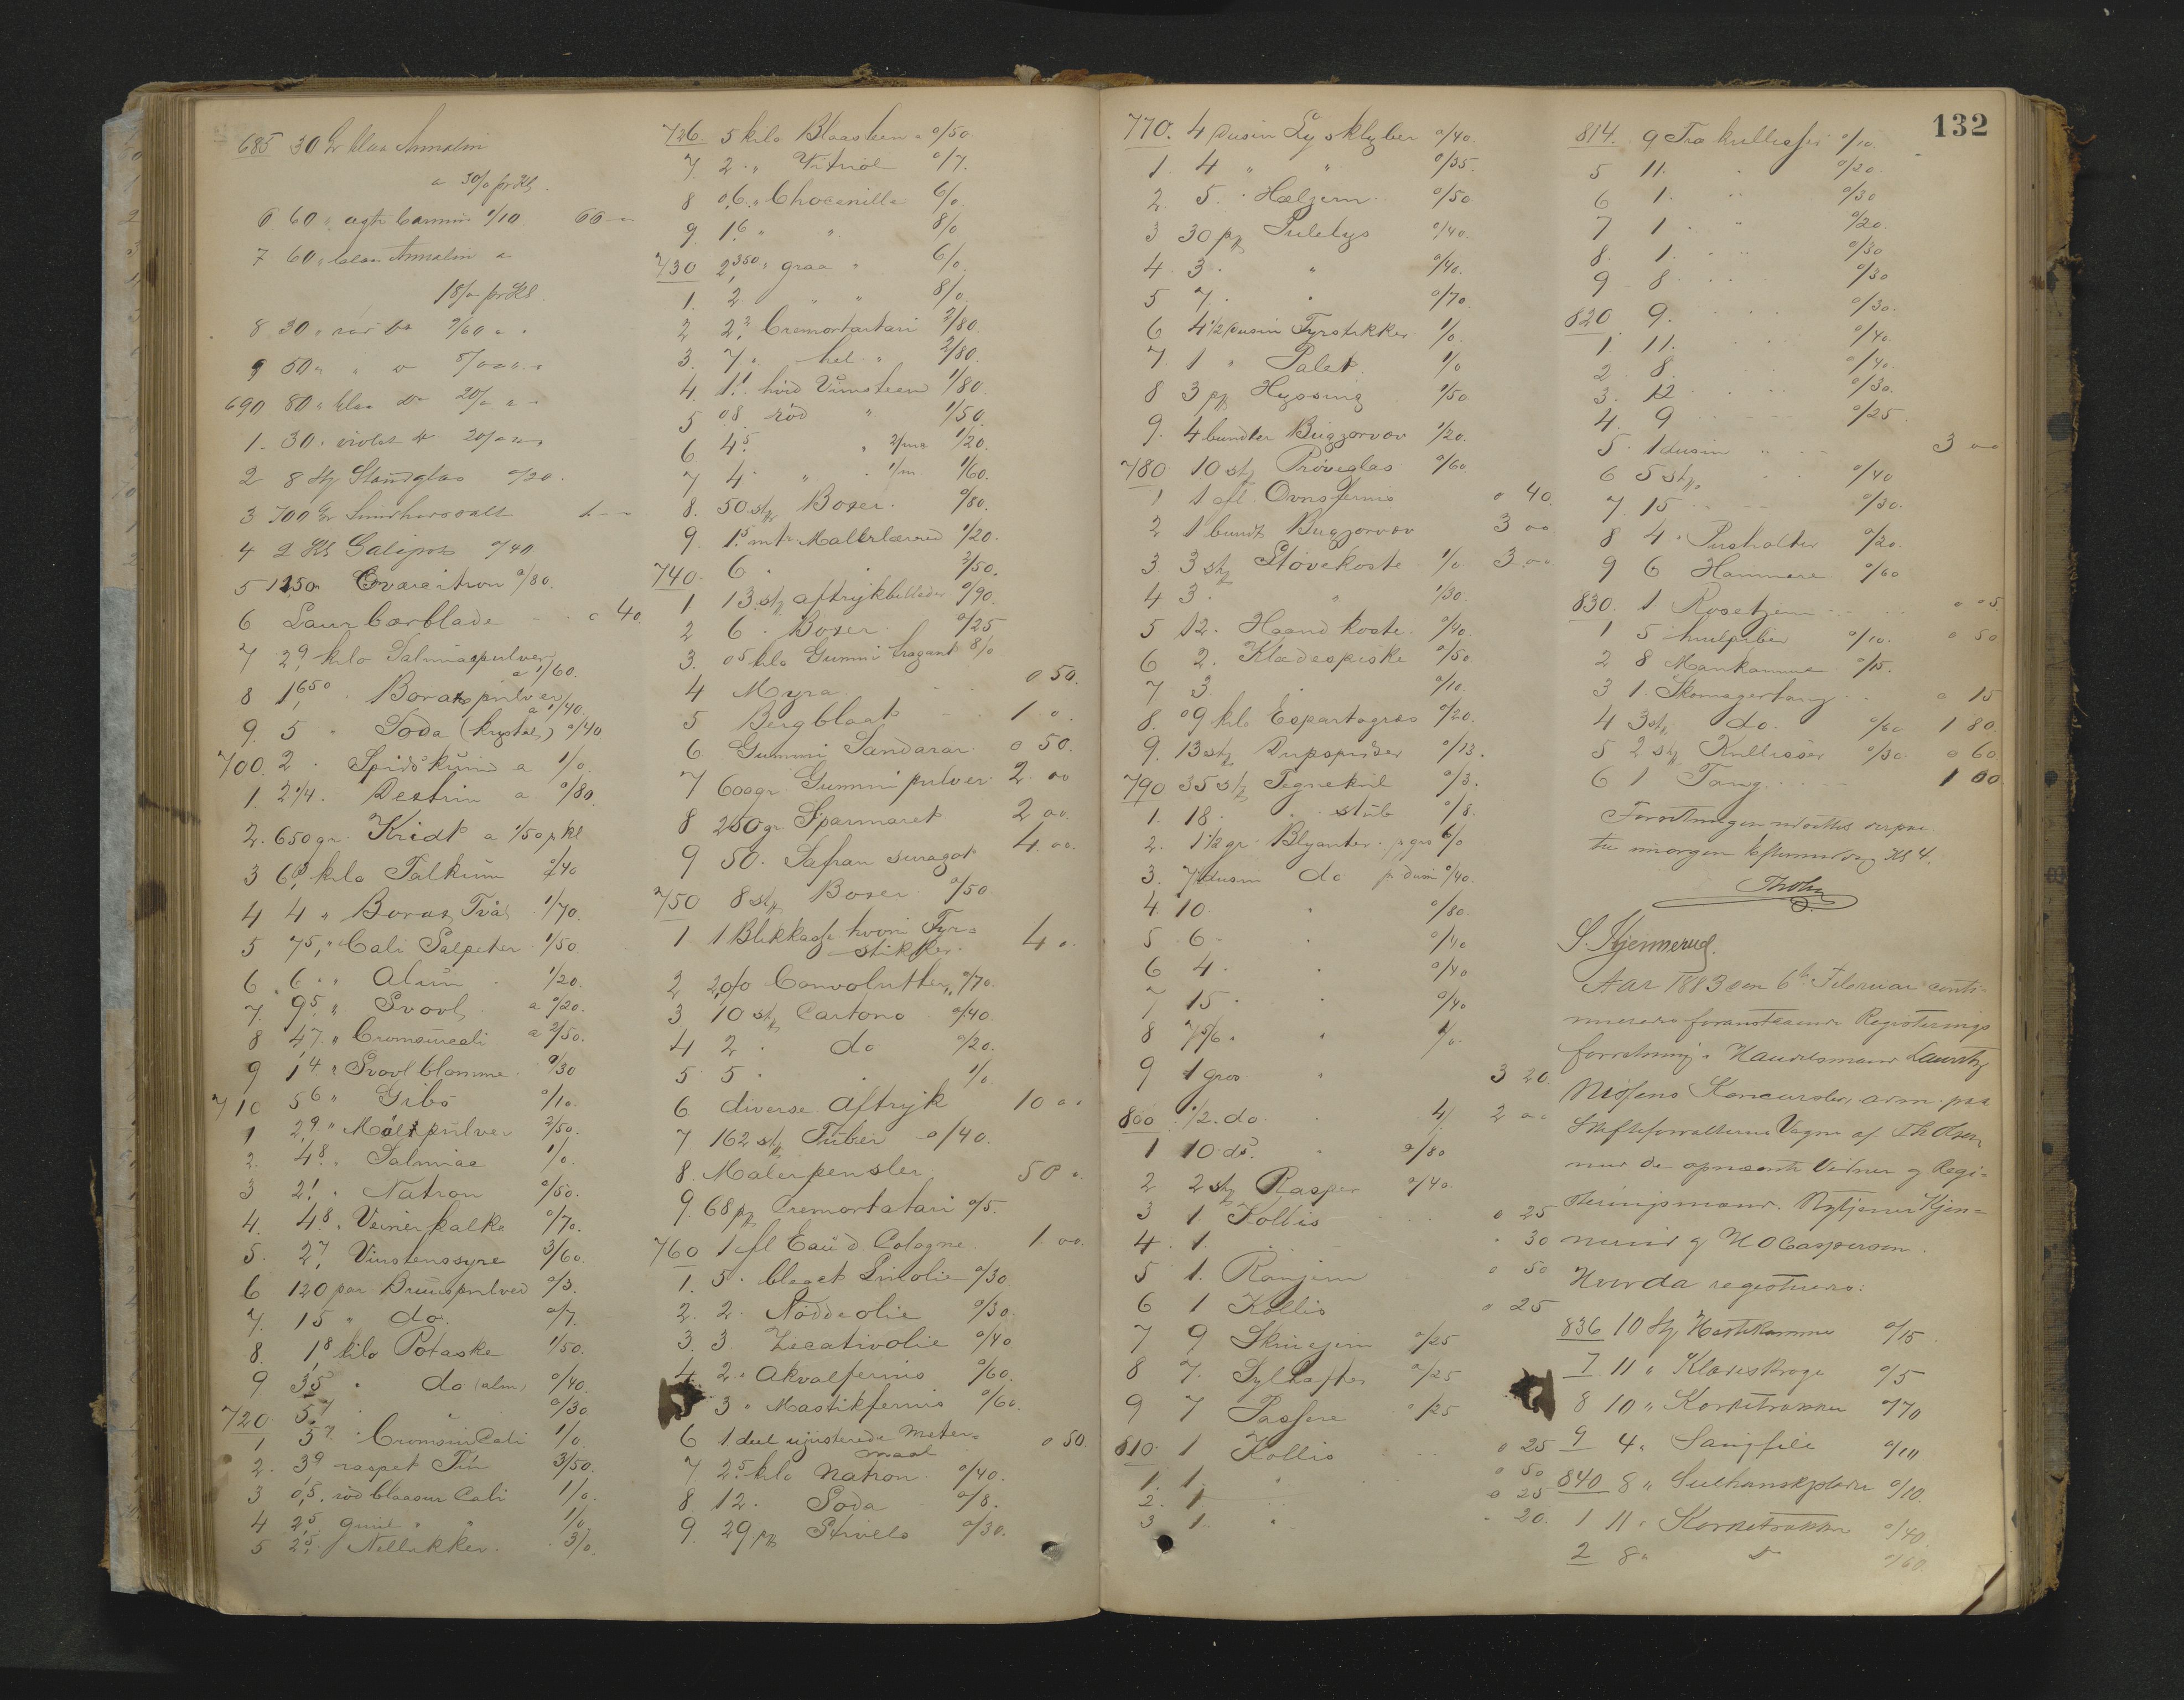 685 30 Gr blaa Annalin
a 30/0 pr Kl.
6 60 " ægte Carmin 1/10 66 –
7 60 " blaa Annalin a
18/0 pr Kl.
8 30 " rød Do 9/60 " "
9 50 " " Do
690 80 " blaa Do 20/0 " "
1. 30 " violet Do 20/0 " "
2 8 Stz Standglas 0/20.
3 700 Gr 1 –
4 2 Kl Galipot 0/40
5 1250 Qvarcitron 0/80.
6 Laurbærblade - - 0 40.
7 2,9 kilo Salmiaspulver
a 1/60.
8 1,650 " Boraxpulver
a 1/40.
9. 5 " Soda (krystal) 0/40
700. 2 " Spidskum a 1/0.
1. 2 1/4. Dextrin a 0/80.
2. 650 gr. Kridt a 1/50 p kl
3 6,3 kilo Talkum 0/40
4 4 " Borax Tvål 1/70.
5 7,5 " Cali Salpeter 1/50.
6 6 " " Alun 1/20.
7. 9,5 " Svovl a 0/20.
8 4,7 " Cromsurcali a 2/50.
9 1,4 " Svovlblomme 0/30
710 5,6 " Gibs 0/10.
1 2,9 " Maltpulver 2/50.
2. 4,8 " Salmiac 1/0.
3 2,1 " Natron 0/50.
4. 4,8 " Veinerkalke 0/70.
5. 2,7 Vinstenssyre 3/60.
6 120 par Bruuspulver 0/3.
7. 15 " do. 0/7.
8. 1,8 kilo Potaske 1/50.
9 35 " do (alm) 0/40.
720. 5,7 " " 0/30
1 5,7 " Cromsur Cali 1/0.
2. 3,9 raspet Tin 3/50.
3 0,5 " rød blaasur Cali 1/0.
4 2,5 guul " " 1/0
5 2,5 Nelliker. 3/0.
726. 5 kilo Blaasteen a 0/50.
7. 2 " " Vitriol 0/7.
8 0,6 " Chocenille 6/0.
9. 1,6 " " 8/0
730 2,350 " graa " 6/0.
1. 2 " " 8/0.
2 2,2 Cremortartari 2/80.
3. 7 " hel " 2/80.
4. 1,1 hvid Viinsteen 1/80.
5 0,8 rød " 1/50.
6 4,5 " 2/ma 1/20.
7 4 " " 1/m. 1/60.
8. 50 stz Boxer. 0/80.
9. 1,5 mtr Mallerlærred 1/20.
740. 6 " " 2/50.
1 13 stz aftrykbilleder 0/90.
2 6 " Boxer. 0/25
3. 0,5 kilo Gummi tragant 8/0
4 Myra 0 50.
5 Bergblaat 1 0.
6 Gummi Sandarac 0 50.
7 600 gr. Gummipulver 2 00
8 250 gr. Sparmaret 2 00.
9 50. Safran surragat 4. 00.
750 8 stz Boxer 0/50
1 1 Blekkasse hvori Fyr-
stikker. 4 0.
2 2,0/0 Convolutter, 0/70.
3 10 stz Cartono 0/40.
4 2 " do 0/20.
5 5 " " 1/0
6 diverse Aftryk 10 00
7 162 stz Tuber 0/40.
8. Malerpensler 50 0.
9. 68 pz Cremortatari 0/5.
760 1 fl Eau d Cologne 1 00.
1. 5 " bleget Linolie 0/30
2. 2. Nøddeolie 0/30.
3. 3 Zecativolie 0/40
4 2 " Akvalfernis 0/60.
3 " Mastikfernis 0/60.
6 1 deel ujusterede Meter-
maal 0 50.
7. 2,5 kilo Natron 0/40.
8. 12. Soda 0/8.
9. 29 pz Stivels 0/30.
132
770. 4 dusin Lysklyber 0/40.
1. 4 " " 0/35.
2. 5. " Hælgern 0/50
3 30 pz Juletys 0/40.
4. 3. " 0/40.
5 7. " 0/70
6 4 1/2 dusin Fyrstikker 1/0.
7. 1 " Palet. 1/0
8 3 pz Hyssing 1/50
9. 4 bundter Buggorvæv 1/20.
780 10 stz Prøveglas 0/60
1 1 fl. Ovnsfernis 0 40.
2 1 bundt Buggorvæv 3 00
3. 3 stz Støvekoste 1/0 3 00
4 3. " 1/30.
5 12. Haandkoste. 0/40.
6 2. Klædespiske 0/50.
7 3 " 0/10.
8. 0,9 kilo Espartogræs 0/20.
9. 13 stz 0/13.
790 35 stz Tegnekul 0/3.
1. 18. " stub 0/8.
2. 1 1/2 gr. Blyanter. p gros 6/0
3. 7 dusin do pr dusin 0/40.
4. 10. " 0/80.
5. 6. 0/40
6 4. " 0/40
7 15. " 0/40
8 7 5/6. " 1/0.
9 1 gros " 3 20.
800 1/2. do. 4/ 2 00
1 10. do. " 0/80
2. 2 stz Rasper 0/40.
3 1 Kollis 0 25
4. 1. " 30
5 1. Ranjern 0 50
6 1 Kollis 0 25
7 9 Skruejern 0/25
8 7. Sylhæfter 0/25
9 7 Passere 0/25
810. 1 Kollis 0 25
1. 1. " 0 50
2. 1 0 25
3 1. " 20.
814. 9 Træ kullisser 0/10.
5 11. " 0/20.
6 1. " 0/30
7 1 " 0/20.
8. 1. " 0/30
9 8. " 0/30
820 9. " 0/30.
1. 11. 0/40.
2. 8. 0/40.
3. 12 0/30.
4. 9 0/25
5. 1 dusin 3 00
6 5 stz. 0/40
7. 15 0/30.
8 4. Penholter 0/20.
9 6 Hammere 0/60
830. 1 Rosetjern 0 05
1 5 huulpiber 0/10. 0 50
2 8 Mankamme 0/15.
3 1. Skomagertang 0 15
4 3 stz do. 0/60 1 80.
5 2 stz Kullisser 0/30. 0 60
6 1 Tang 1 00
Forretningen udsættes derpaa
til imorgen Eftermiddag Kl 4.
ThOlsen
S. Kjennerud.
Aar 1883 den 6te Februar conti-
nueredes foranstaaende Registrerings
forretning i Handelsmand Lauritz
Nissens Koncursbo, adm. paa
Skifteforvalterens Vegne af Th Olsen
med de opnævnte Vidner og Regi-
streringsmænd. Nytjener Kjen-
nerud og N O Caspersen.
Hvorda registreredes:
836 10 Stz Hestekamme 0/15.
7 11 " Klædeskroge 0/5
8 10 " Korketrækker 0/70
9 4 " Saugfile 0/10
840 8 " 0/10.
1 11 " Korketrækker 0/40.
2 8 " Do 0/60